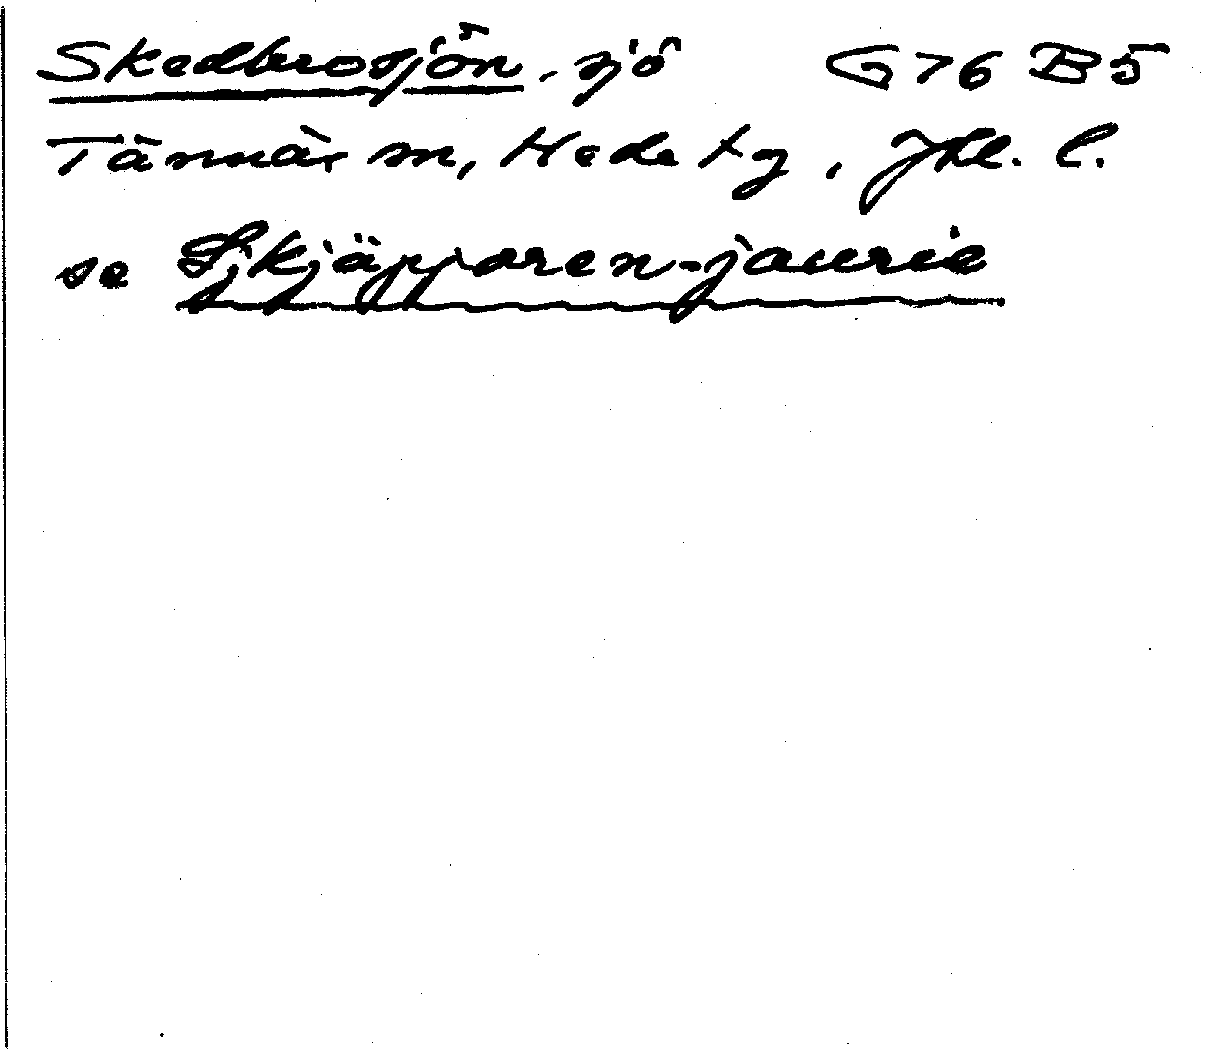 Skedbrosjön, sjö G76 B5
Tännäs sn, Hede tg, Jtl. l.
se Sjkjäpparen-jaurie